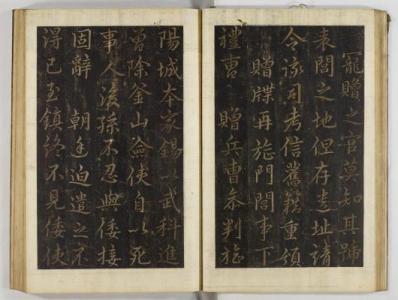 寵贈之官莫知其號
表閭之地但存遺址請
令該司考信舊籍重頒
贈牒再旌門閭事下
禮曹 贈兵曹參判旌
陽城本家錫以武科進
曾除釜山僉使自以死
事人後孫不忍與倭接
固辭 朝廷迫遣之不
得已至鎮終不見倭使